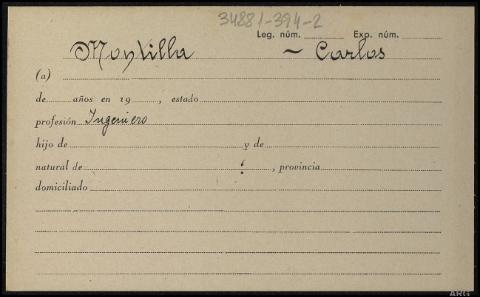 34881-394-2
Leg. núm. Exp. núm.
Montilla ~ Carlos
(a)
de años en 19 , estado
profesión Ingeniero
hijo de y de
natural de , provincia
domiciliado